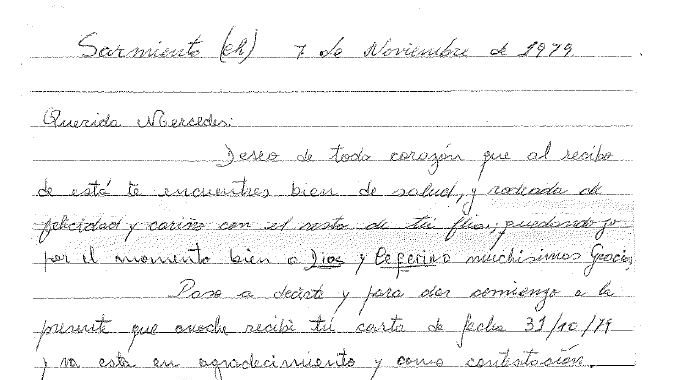 Sarmiento (ch) 7 de Noviembre de 1979
Querida Mercedes:
Deseo de todo corazón que al recibo
de está te encuentres bien de salud, y rodeada de
felicidad y cariño con el resto de tú flia; quedando yo
por el momento bien a Dios y Ceferino muchísimas Gracias,
Paso a decirte y para dar comienzo a la
presente que anoche recibí tú carta de fecha 31/10/79
y va esta en agradecimiento y como contestación.